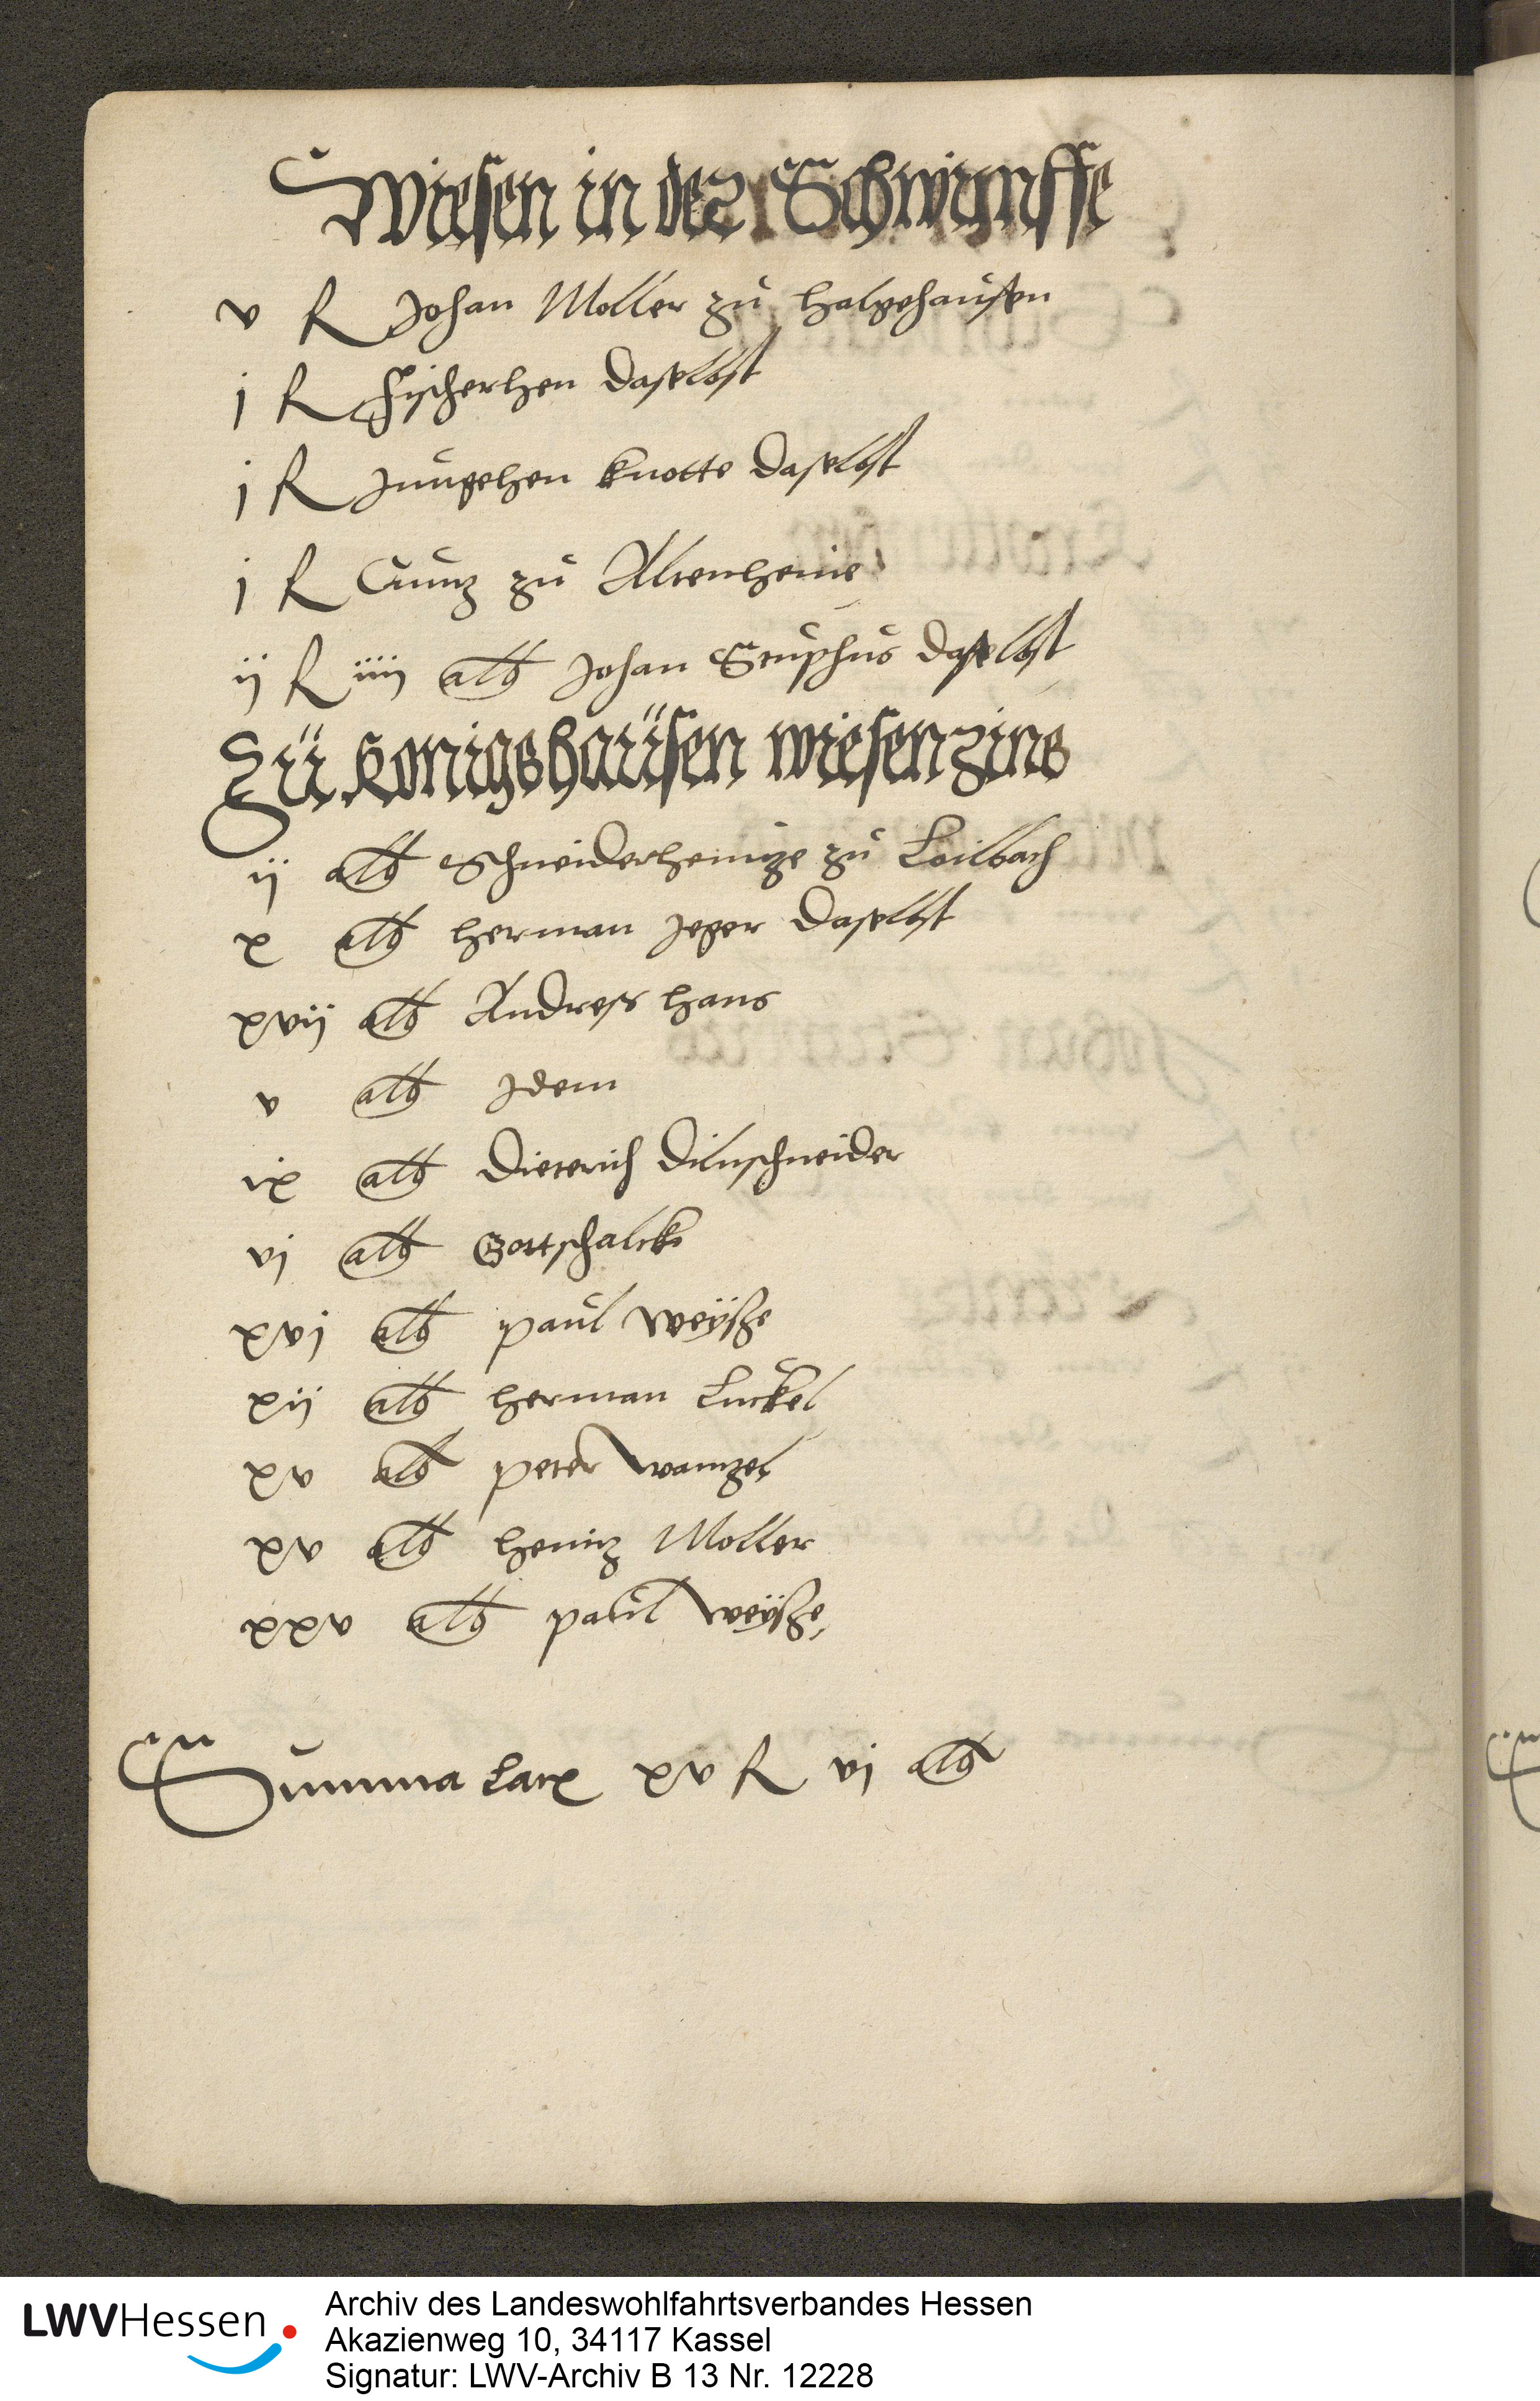 Wiesen in der Schwimffe
v fl Johan Moller zu halgehausen
j fl Fischerhen daselbst
j fl Jungehen knotte daselbst
j fl Cuntz zu Altenheine
ij fl iiij alb Johan Seuphus daselbst
Zü Konigshaüsen wiesenzins
ij alb Schneiderheintze zu Loilbach
x alb herman Jeger daselbst
xvij alb Andress hans
v alb Jdem
ix alb Dieterich dilnschneider
vj alb Gottschalck
xvj alb paul weÿße
xij alb herman Luckel
xv alb peter wantzel
xv alb heintz Moller
xxv alb paul weÿße
Summa Latx xv fl vj alb
LWVHessen
Archiv des Landeswohlfahrtsverbandes Hessen
Akazienweg 10, 34117 Kassel
Signatur: LWV-Archiv B 13 Nr. 12228